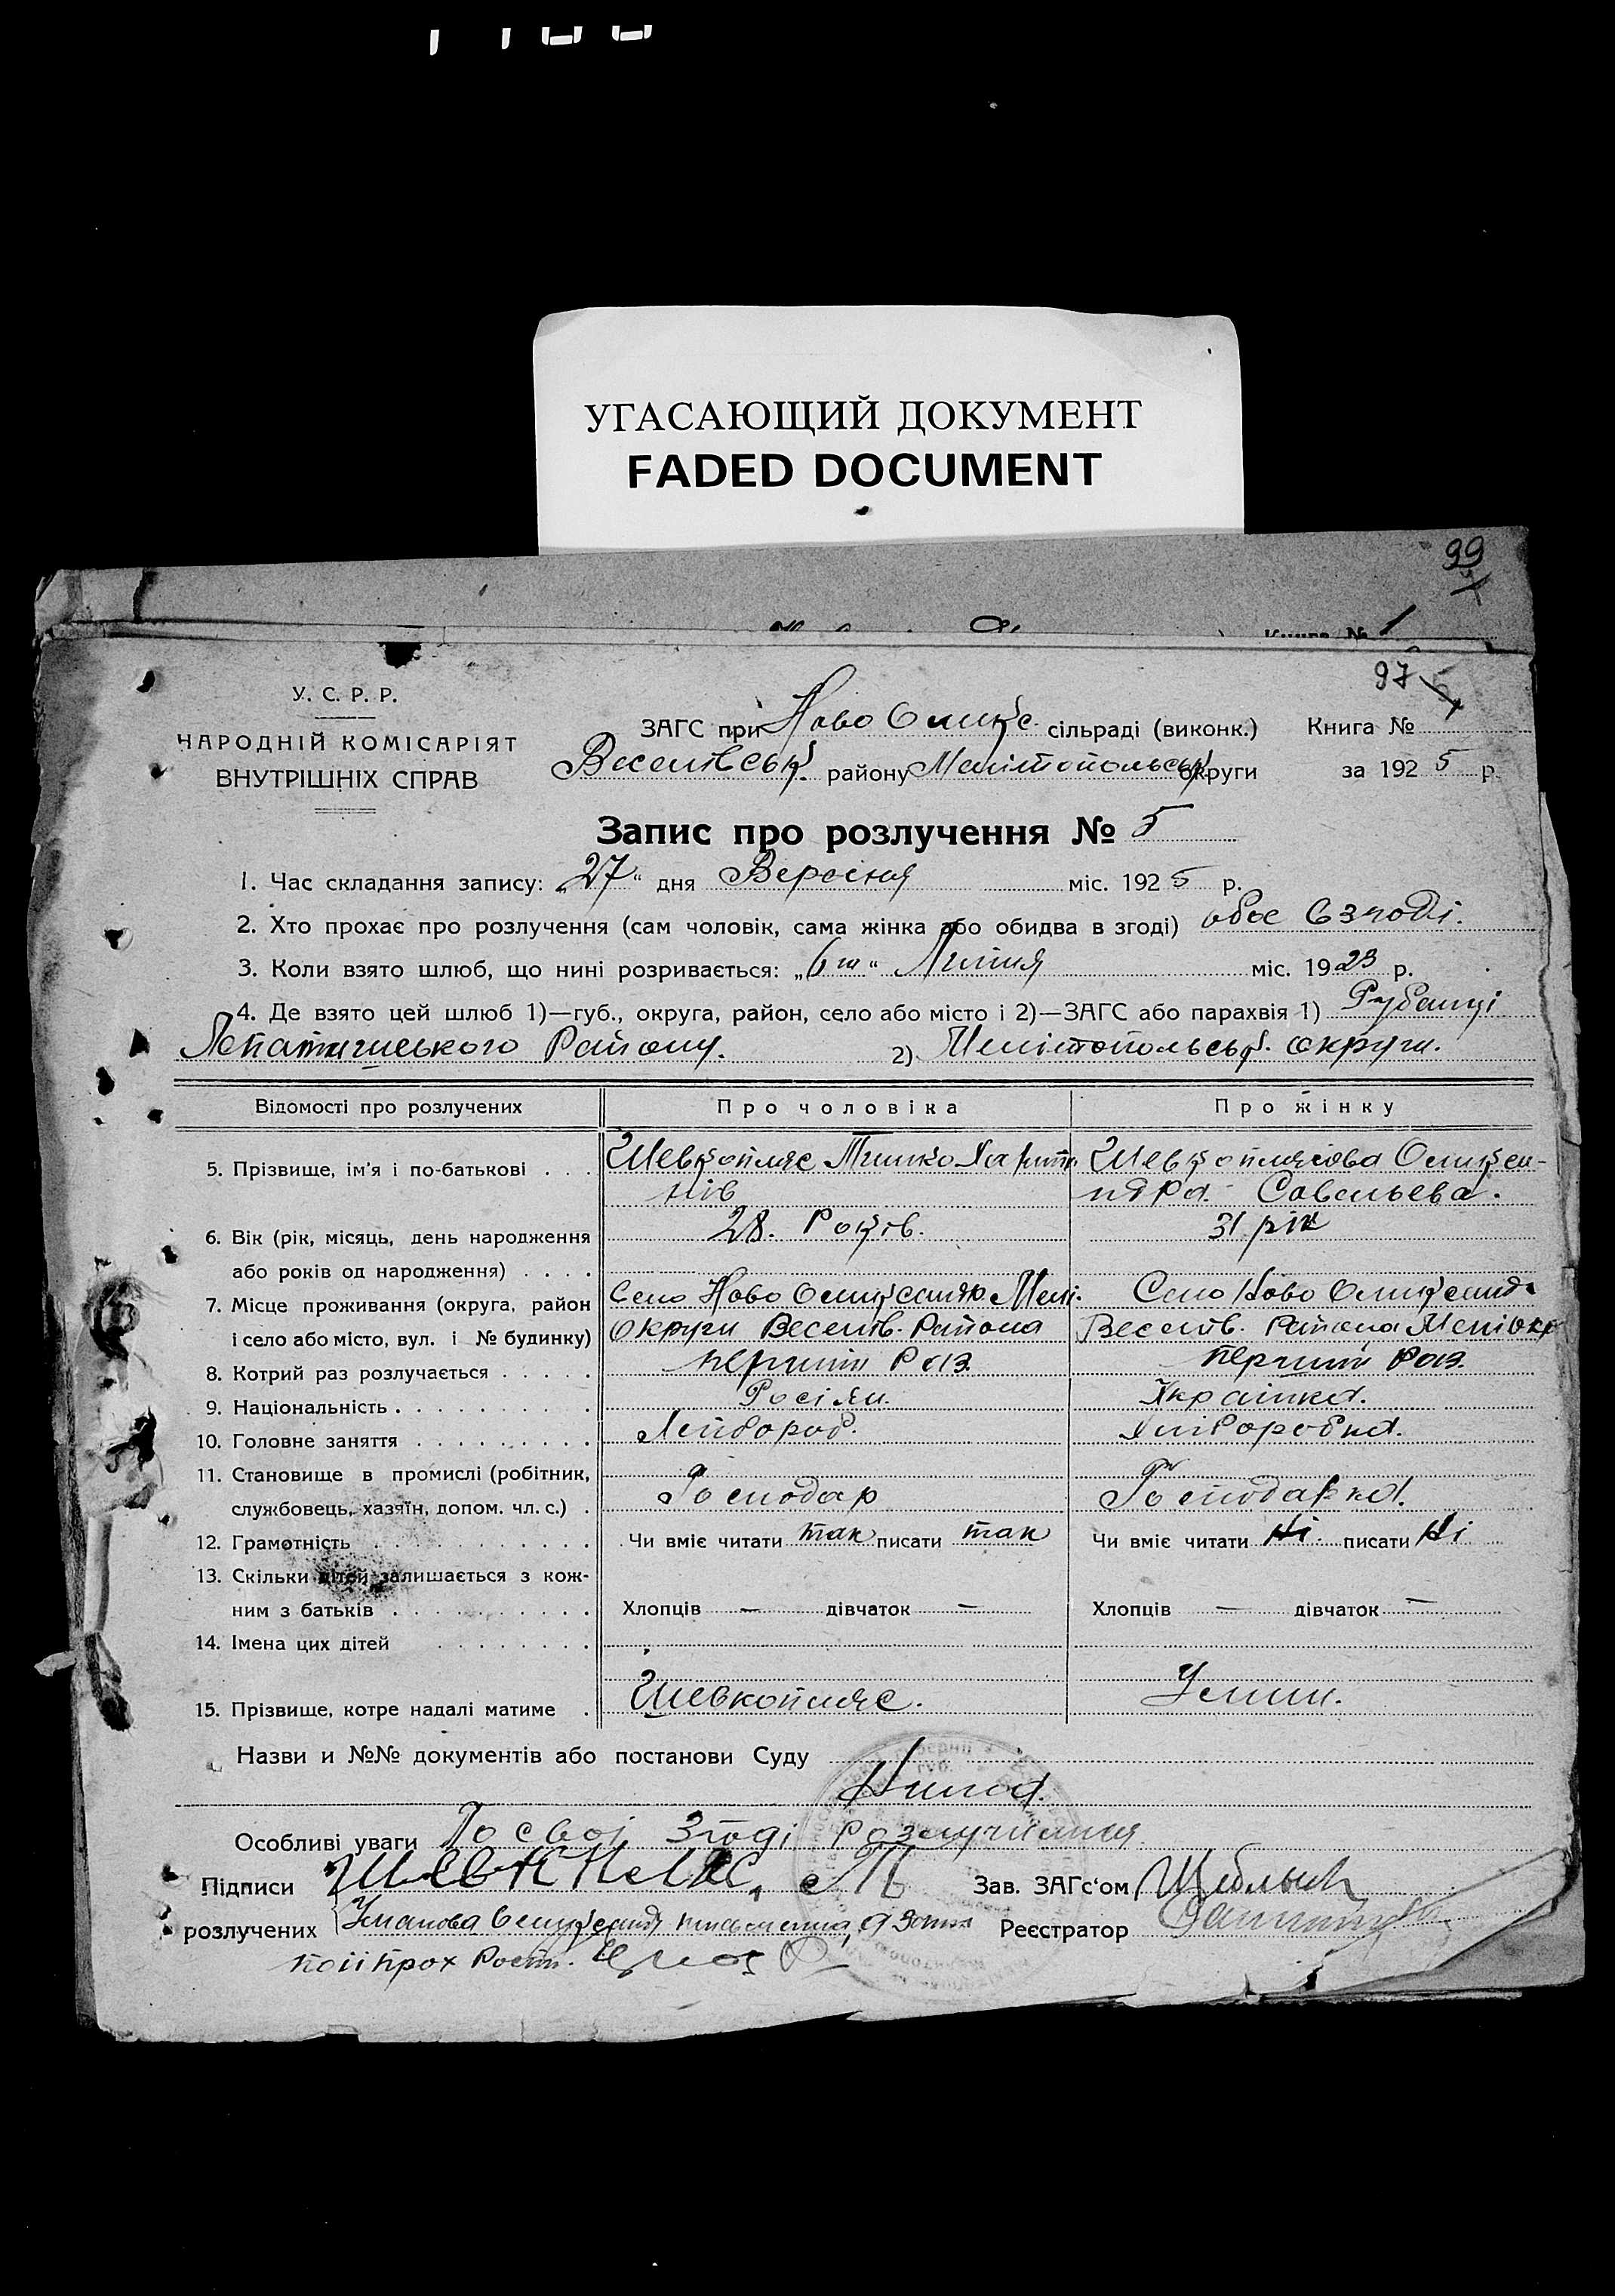 УГАСАЮЩИЙ ДОКУМЕНТ
FADED DOCUMENT
99
Книга № 1
97
У. С. Р. Р.
НАРОДНІЙ КОМІСАРІЯТ
ВНУТРІШНІХ СПРАВ
ЗАГС при Ново Олекс. сільраді (виконк.) Книга №
Веселівськ. району Мелітопольськ округи за 1925 р.
Запис про розлучення № 5
1. Час складання запису: „27“ дня Версіня міс. 1925 р.
2. Хто прохає про розлучення (сам чоловік, сама жінка або обидва в згоді) обоє взгоді.
3. Коли взято шлюб, що нині розривається: „6го“ Липня міс. 1923 р.
4. Де взято цей шлюб 1)—губ., округа, район, село або місто і 2)—ЗАГС або парахвія 1)
Району. 2) Мелітопольськ. округи.
Відомості про розлучених Про чоловіка Про жінку
5. Прізвище, ім'я і по-батькові . . . Шевкопляс Тимко Харито Шевкоплясова Олексан-
нів ндра. Савельева.
6. Вік (рік, місяць, день народження 28. Років. 31 рік
або років од народження) . . . .
7. Місце проживання (округа, район Село Ново Олександр Мелі. Село Ново Олександ
і село або місто, вул. і № будинку) Округи Веселів. Района Веселів. Района Меліокр
8. Котрий раз розлучається . . . . . перший раз. перший раз.
9. Національність . . . . . . . . . Росіян. Українка.
10. Головне заняття . . . . . . . . . Хлібороб. Хліборобка.
11. Становище в промислі (робітник,
службовець, хазяїн, допом. чл. с.) . Господар Господарка.
12. Грамотність . . . . . . . . . . . Чи вміє читати так писати так Чи вміє читати Ні писати Ні
13. Скільки дітей залишається з кож-
ним з батьків . . . . . . . . . . Хлопців — дівчаток — Хлопців — дівчаток —
14. Імена цих дітей . . . . . . . .
15. Прізвище, котре надалі матиме . Шевкопляс.
Назви и №№ документів або постанови Суду
Нима.
Особливі уваги По своі згоді
Підписи Зав. ЗАГс'ом
розлучених Реєстратор